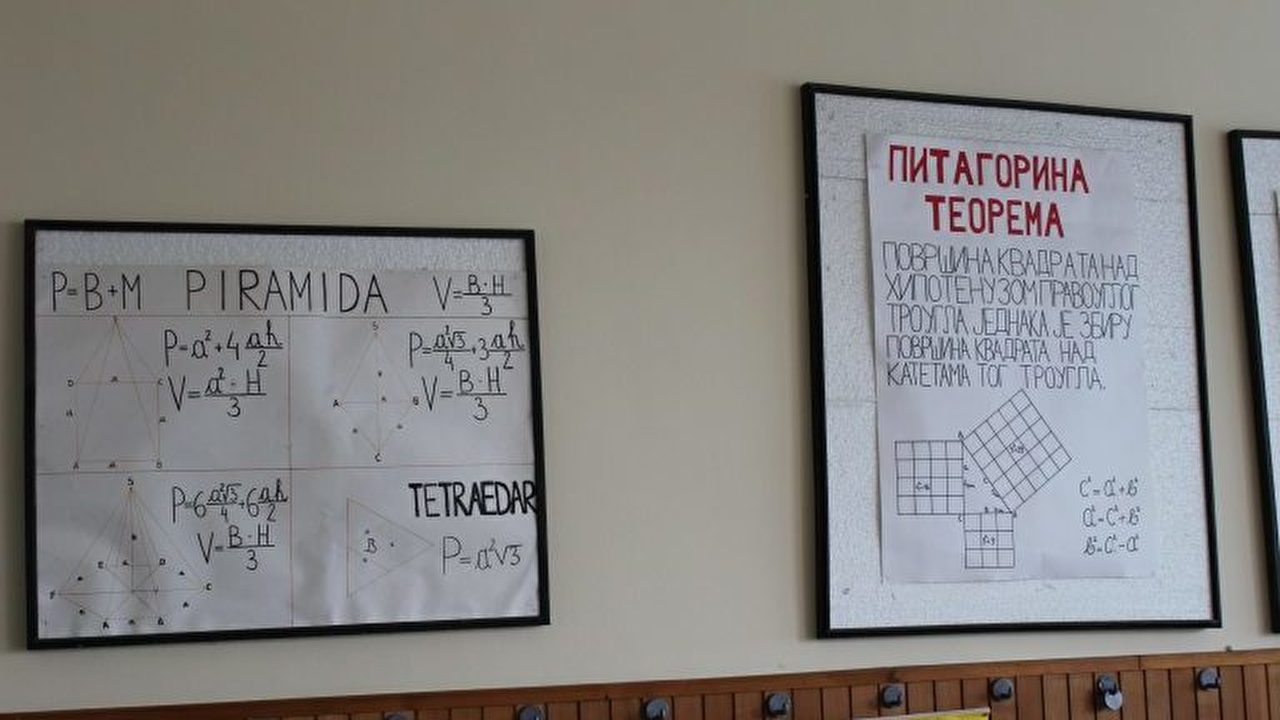 P=B+M PIRAMIDA V=B·H/3
P=a²+4 ah/2
V=a²·H/3
P=a²√3/4+3 ah/2
V=B·H/3
P=6 a²√3/4+6 ah/2
V=B·H/3
TETRAEDAR
B
P=a²√3
ПИТАГОРИНА
ТЕОРЕМА
ПОВРШИНА КВАДРАТА НАД
ХИПОТЕНУЗОМ ПРАВОУГЛОГ
ТРОУГЛА ЈЕДНАКА ЈЕ ЗБИРУ
ПОВРШИНА КВАДРАТА НАД
КАТЕТАМА ТОГ ТРОУГЛА.